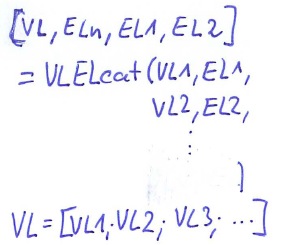 [VL, ELn, EL1, EL2]
= VLELcat(VL1, EL1,
VL2, EL2,
⋮
)
VL = [VL1; VL2; VL3; ...]